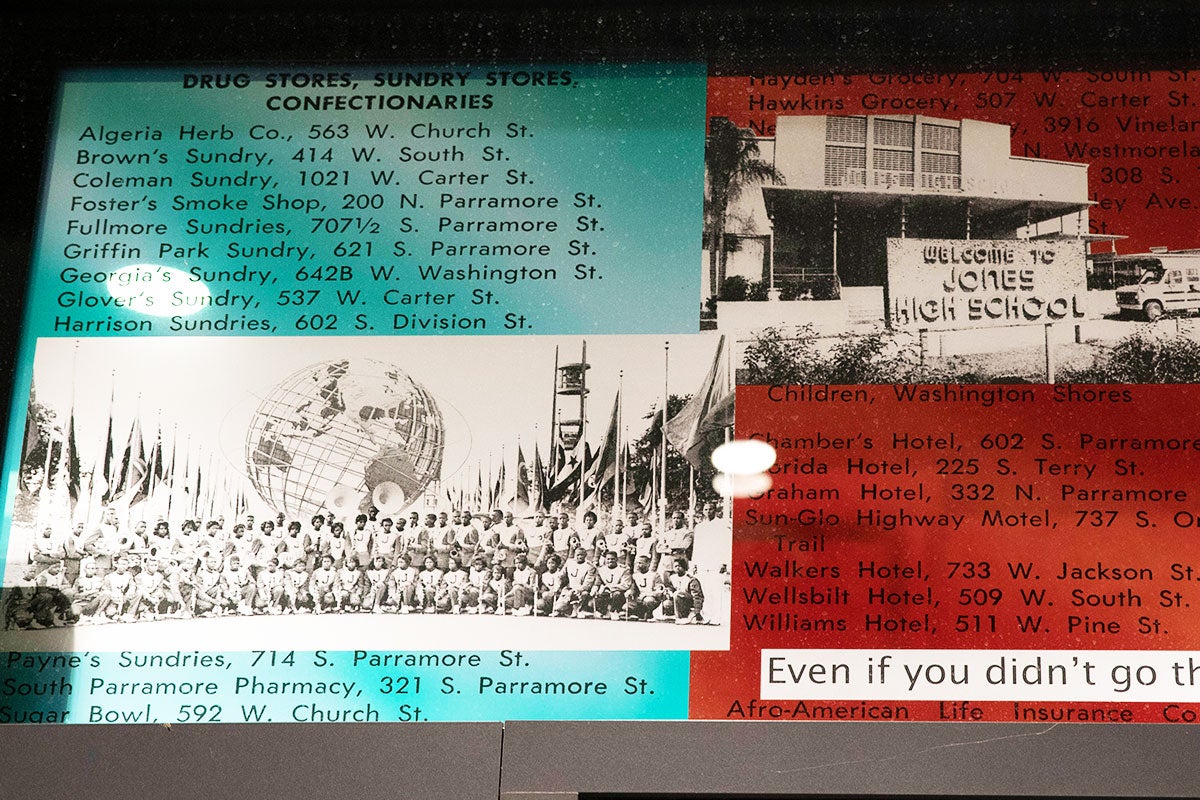 DRUG STORES, SUNDRY STORES,
CONFECTIONARIES
Algeria Herb Co., 563 W. Church St.
Brown's Sundry, 414 W. South St.
Coleman Sundry, 1021 W. Carter St.
Foster's Smoke Shop, 200 N. Parramore St.
Fullmore Sundries, 707½ S. Parramore St.
Griffin Park Sundry, 621 S. Parramore St.
Georgia's Sundry, 642B W. Washington St.
Glover's Sundry, 537 W. Carter St.
Harrison Sundries, 602 S. Division St.
Payne's Sundries, 714 S. Parramore St.
South Parramore Pharmacy, 321 S. Parramore St.
Sugar Bowl, 592 W. Church St.
Hayden's Grocery, 704 W. South St.
Hawkins Grocery, 507 W. Carter St.
3916
N.
308 S.
Ave.
St.
WELCOME TO
JONES
HIGH SCHOOL
Children, Washington Shores
Chamber's Hotel, 602 S. Parramore
Hotel, 225 S. Terry St.
Graham Hotel, 332 N. Parramore
Sun-Glo Highway Motel, 737 S.
Trail
Walkers Hotel, 733 W. Jackson St.
Wellsbilt Hotel, 509 W. South St.
Williams Hotel, 511 W. Pine St.
Even if you didn't go
Afro-American Life Insurance Co